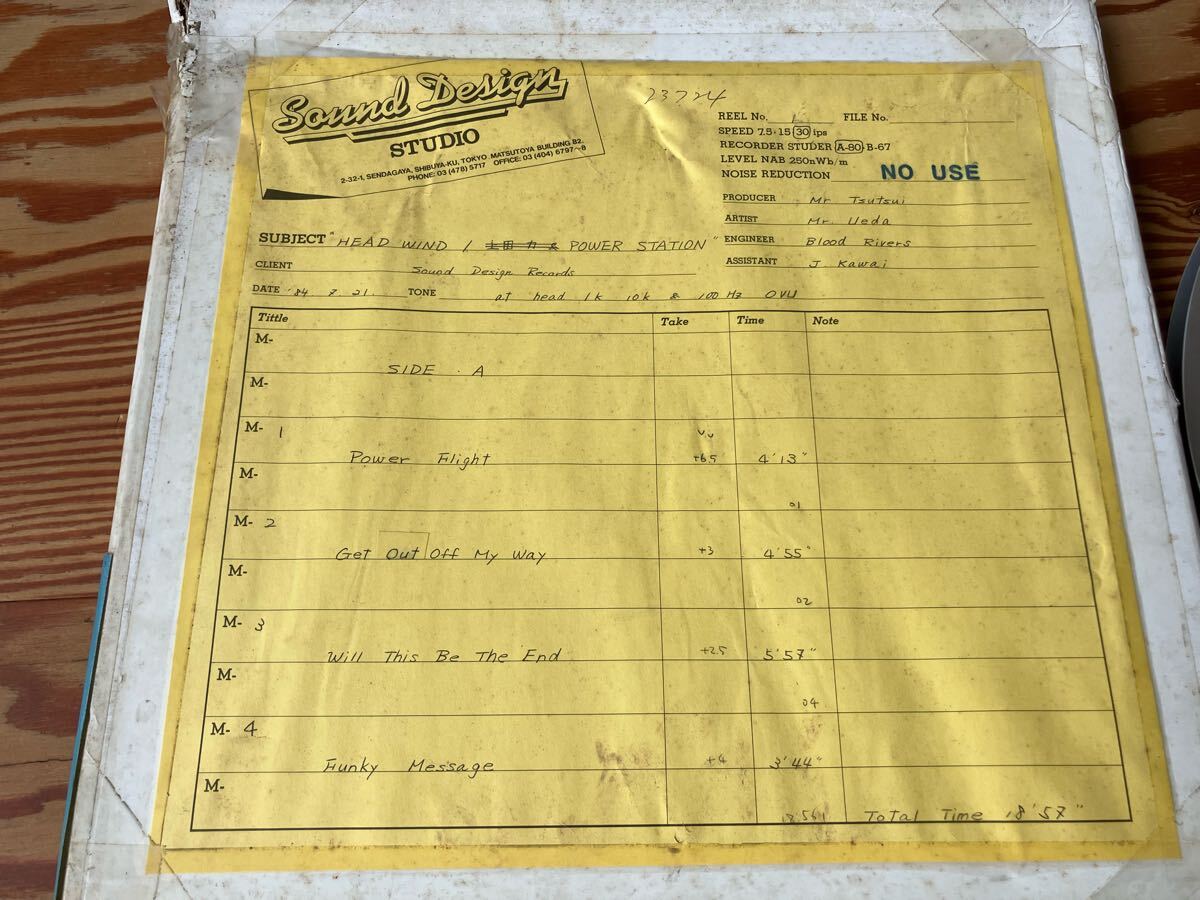 Sound Design
STUDIO
2-32-1, SENDAGAYA, SHIBUYA-KU, TOKYO. MATSUTOYA BUILDING B2.
PHONE: 03 (478) 5717 OFFICE: 03 (404) 6797~8
23724
REEL No. 1 FILE No.
SPEED 7.5·15·30 ips
RECORDER STUDER A-80·B-67
LEVEL NAB 250nWb/m
NOISE REDUCTION NO USE
PRODUCER Mr. Tsutsui
ARTIST Mr. Ueda
ENGINEER Blood Rivers
ASSISTANT J. Kawai
SUBJECT "HEAD WIND / POWER STATION"
CLIENT Sound Design Records
DATE '84. 7. 21. TONE at head 1k 10k & 100Hz OVU
Tittle Take Time Note
M-
SIDE . A
M-
M- 1
Power Flight +6.5 4'13"
M-
01
M- 2
Get Out Off My Way +3 4'55"
M-
02
M- 3
Will This Be The End +2.5 5'57"
M-
04
M- 4
Funky Message +4 3'44"
M-
Total Time 18'57"